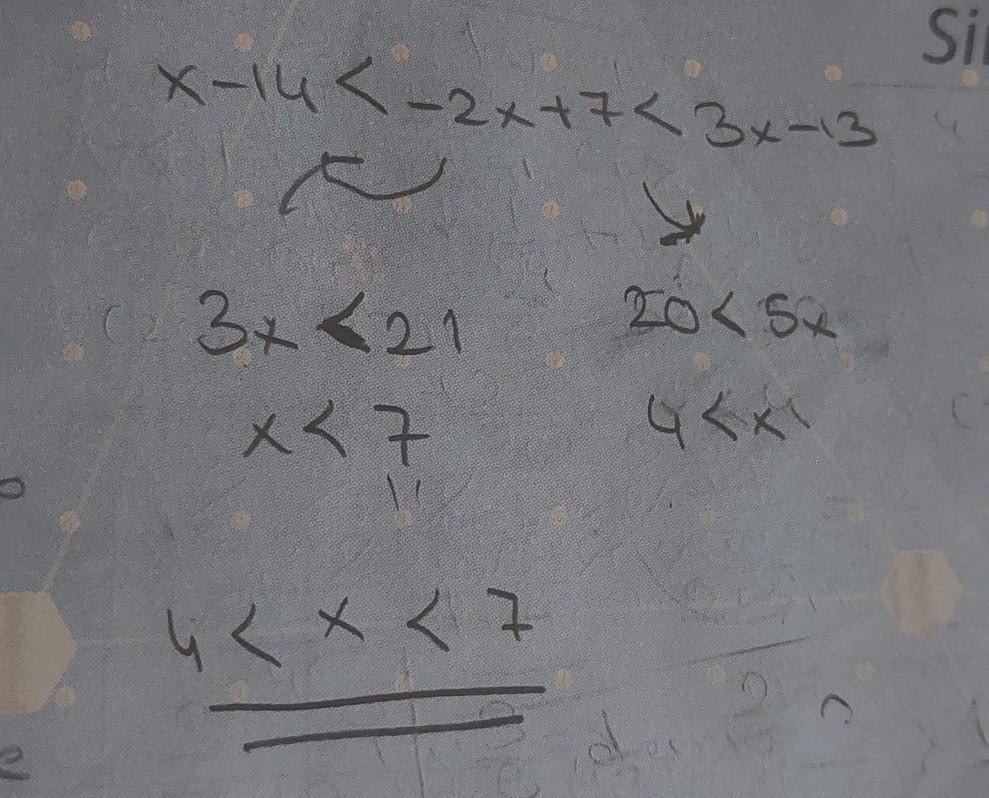 x-14 < -2x+7 < 3x-13
3x < 21 20 < 5x
x < 7 4 < x
4 < x < 7